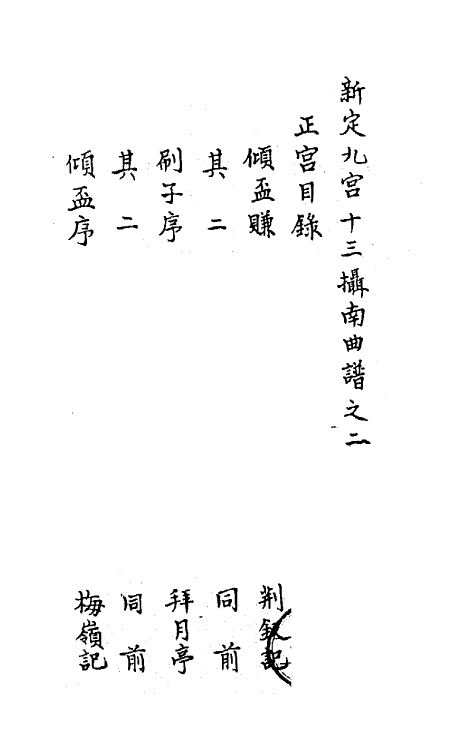 新定九宫十三攝南曲譜之二
正宫目錄
傾盃賺　荆釵記
其二　同前
刷子序　拜月亭
其二　同前
傾盃序　梅嶺記